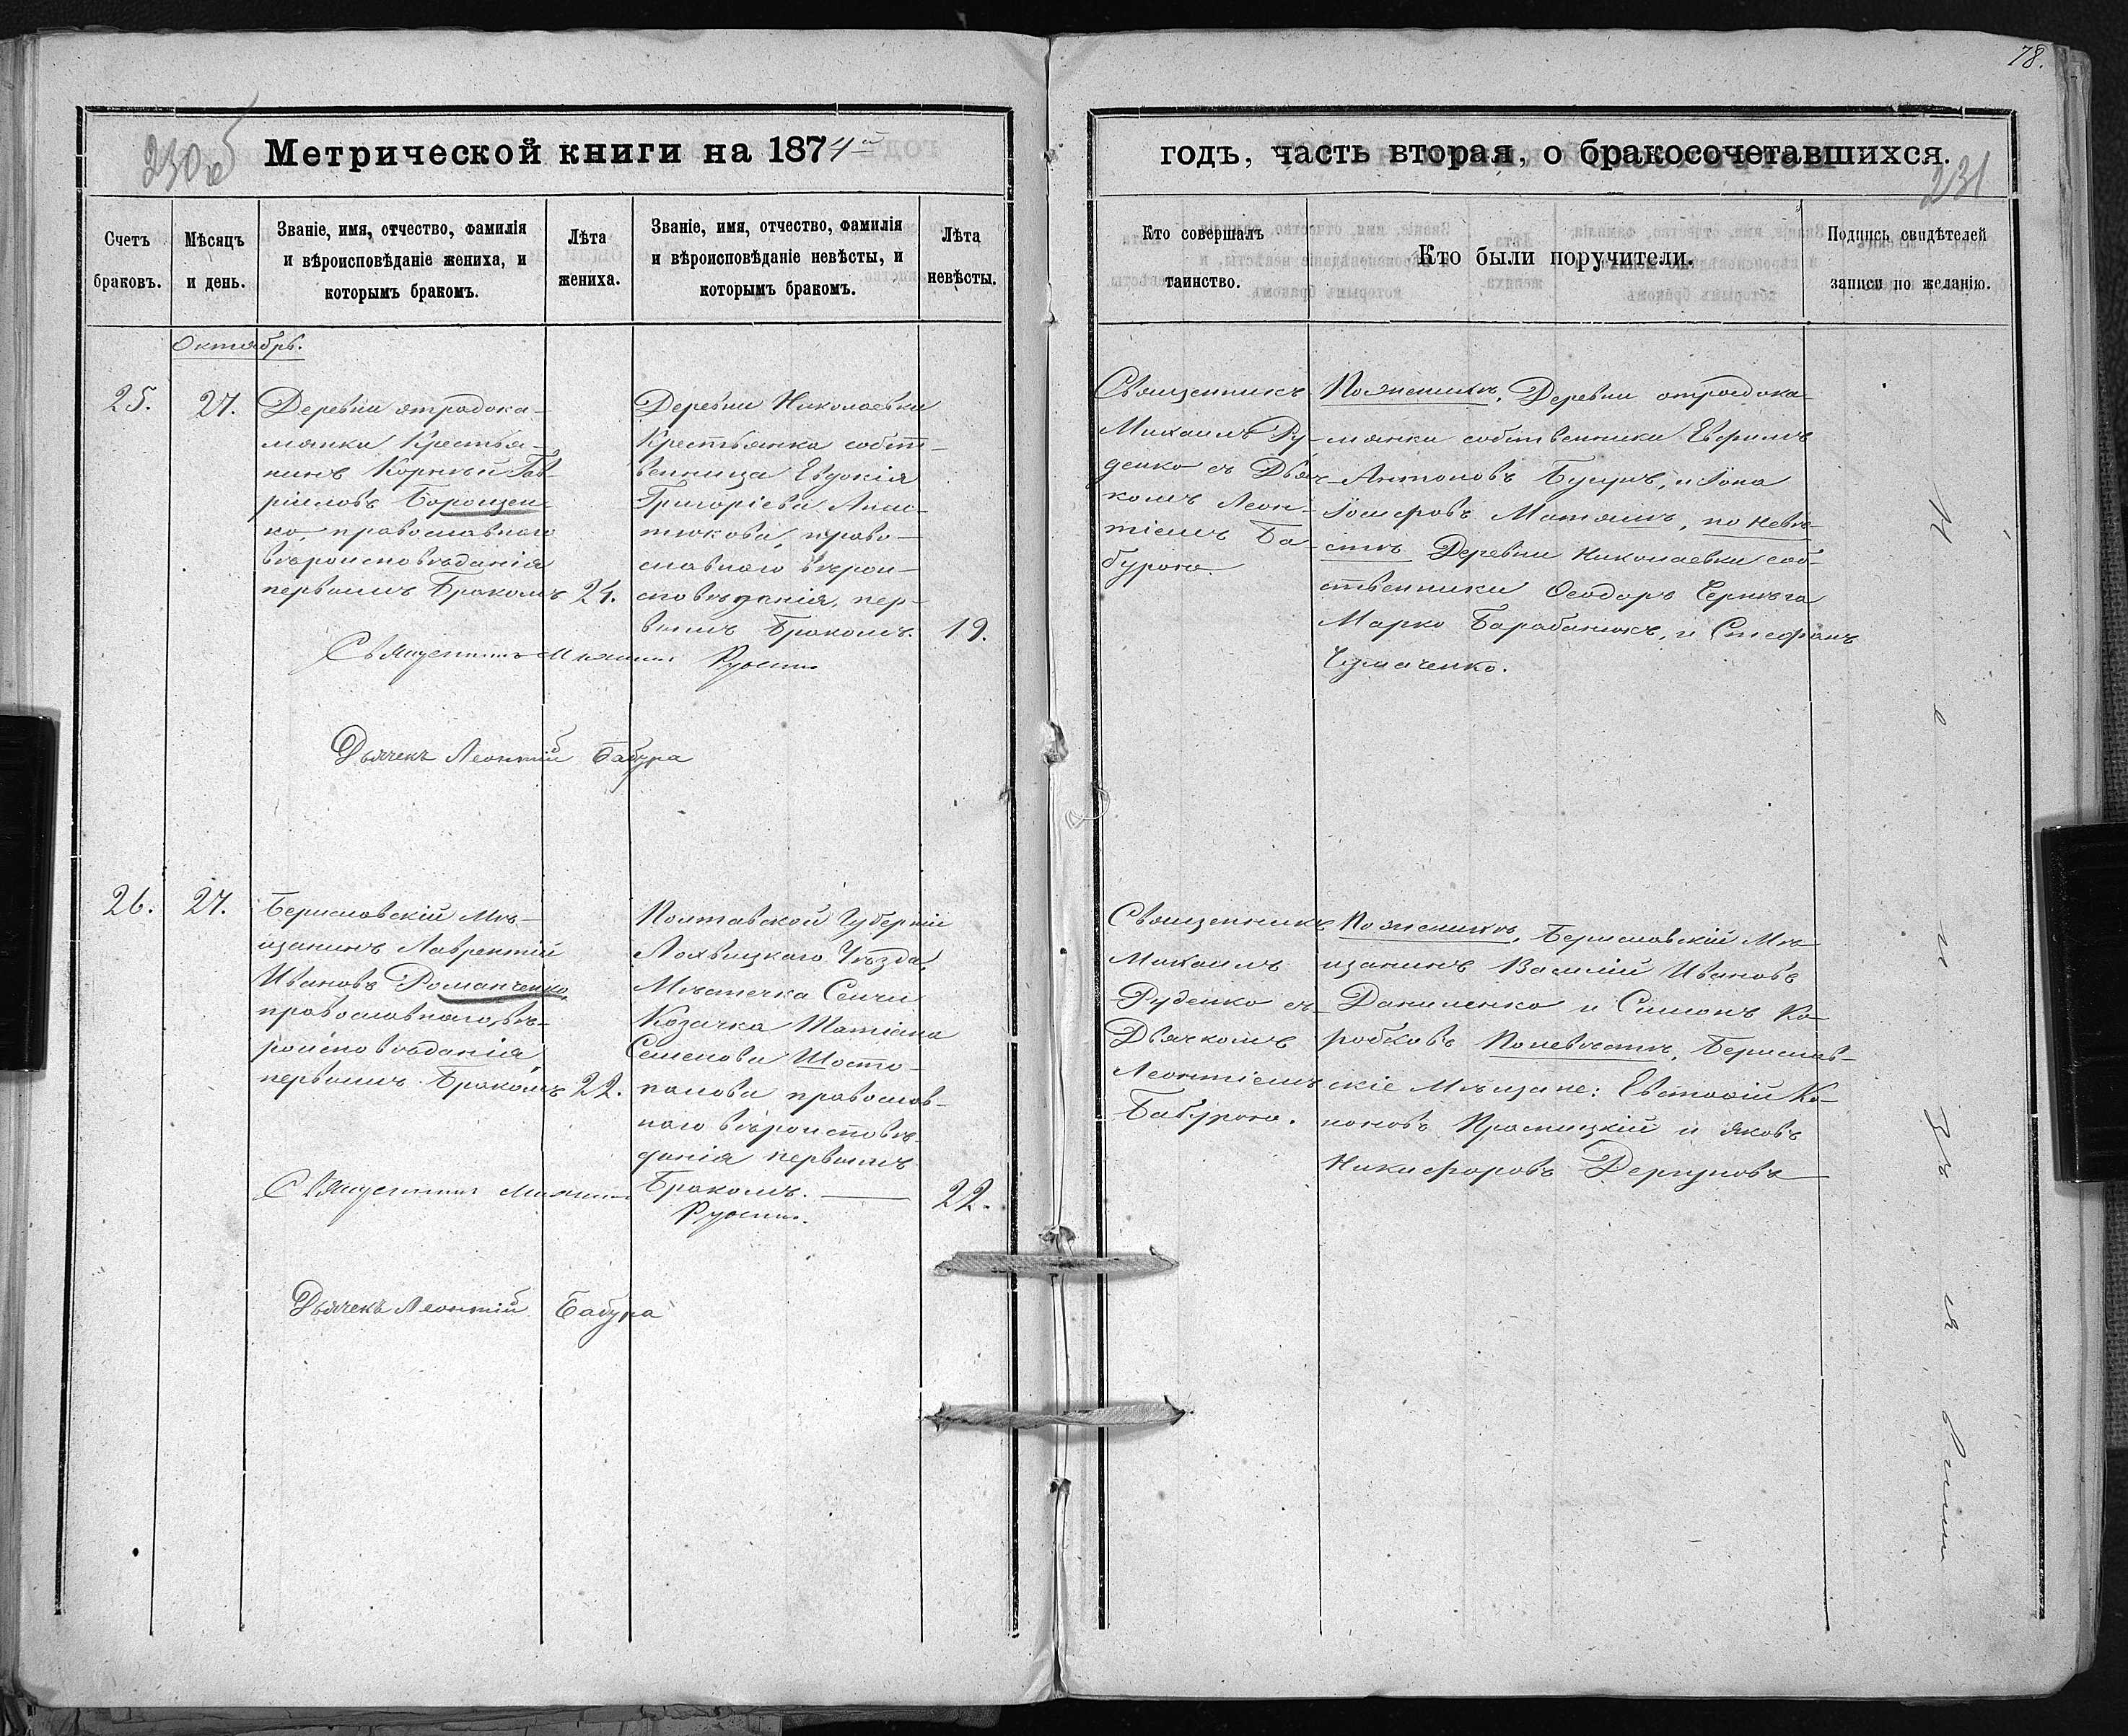 78.
230об
Метрической книги на 1874й
годъ, часть вторая, о бракосочетавшихся.
231
Счетъ браковъ.
Мѣсяцъ и день.
Званіе, имя, отчество, фамилія
и вѣроисповѣданіе жениха, и
которымъ бракомъ.
Лѣта
жениха.
Званіе, имя, отчество, фамилія
и вѣроисповѣданіе невѣсты, и
которымъ бракомъ.
Лѣта
невѣсты.
Кто совершалъ
таинство.
Кто были поручители.
Подпись свидѣтелей
записи по желанію.
Октябрь.
25.
27.
Деревни отрадока-
мянки Крестья-
нинъ Корнѣй Гав-
ріиловъ Борощен
ко, православнаго
вѣроисповѣданія
первымъ Бракомъ
24.
Деревни Николаевки
Крестьянка собст-
венница Евдокія
Григоріева Апас-
тюкова, право-
славнаго вѣрои-
сповѣданія, пер-
вымъ Бракомъ.
19.
Священникъ Михаилъ Руденко
Дьячекъ Леонтій Бабура
Священникъ
Михаилъ Ру-
денко съ Дьяч-
комъ Леон-
тіемъ Ба-
бурою.
По женихѣ, Деревни отрадока-
мянки собственники Ефимъ
Антоновъ Бущъ, и Іона
Іосифовъ Матяшъ, по невѣ-
стѣ Деревни Николаевки соб-
ственники Ѳеодоръ Чернѣга
Марко Барабанюкъ, и Стефанъ
Чумаченко.
26.
27.
Бериславскій Мѣ-
щанинъ Лаврентій
Ивановъ Романченко,
православнаго вѣ-
роисповѣданія
первымъ Бракомъ
22.
Полтавской Губерніи
Лохвицкаго Уѣзда,
Мѣстечка Сенчи
Козачка Татіана
Семенова Шосто-
палова православ-
наго вѣроисповѣ-
данія первымъ
Бракомъ.
22.
Священникъ Михаилъ
Руденко.
Дьячекъ Леонтій Бабура
Священникъ
Михаилъ
Руденко съ
Дьячкомъ
Леонтіемъ
Бабурою.
По женихѣ, Бериславскій Мѣ-
щанинъ Василій Ивановъ
Даниленко и Симонъ Ко-
робковъ По невѣстѣ, Берислав-
скіе Мѣщане: Евстафій Ко-
ноновъ и Яковъ
Никифоровъ Дергуновъ